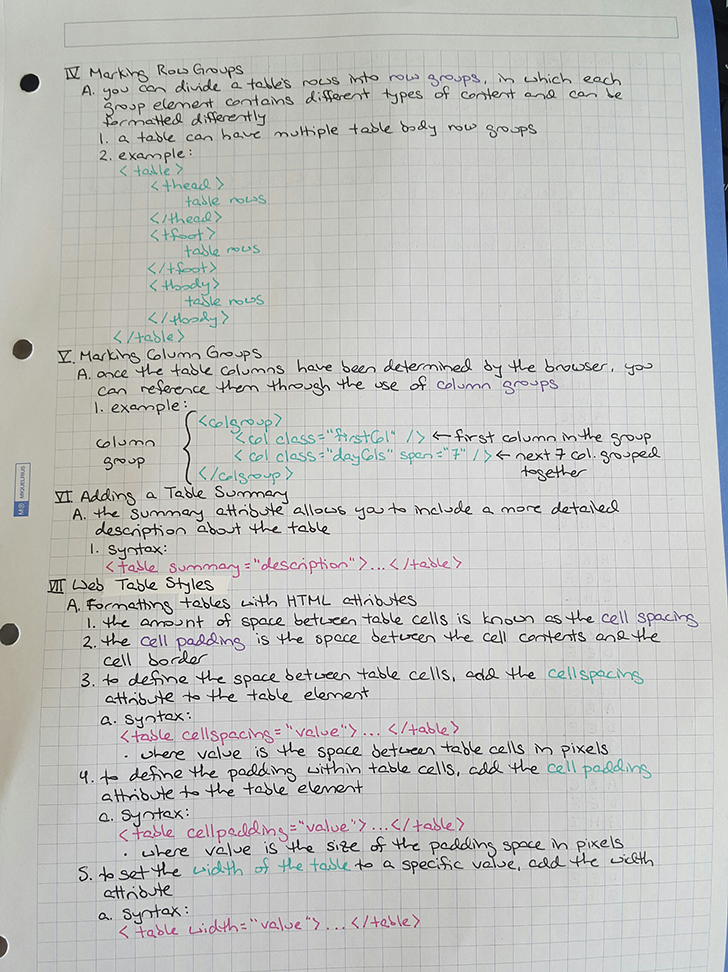 IV Marking Row Groups
A. you can divide a table's rows into row groups, in which each
group element contains different types of content and can be
formatted differently
1. a table can have multiple table body row groups
2. example:
<table>
<thead>
table rows
</thead>
<tfoot>
table rows
</tfoot>
<tbody>
table rows
</tbody>
</table>
V. Marking Column Groups
A. once the table columns have been determined by the browser, you
can reference them through the use of column groups
1. example:
column
group
<colgroup>
<col class="firstCol" /> ← first column in the group
<col class="dayCols" span="7" /> ← next 7 col. grouped
together
</colgroup>
VI Adding a Table Summary
A. the summary attribute allows you to include a more detailed
description about the table
1. syntax:
<table summary="description">...</table>
VII Web Table Styles
A. Formatting tables with HTML attributes
1. the amount of space between table cells is known as the cell spacing
2. the cell padding is the space between the cell contents and the
cell border
3. to define the space between table cells, add the cellspacing
attribute to the table element
a. syntax:
<table cellspacing="value">...</table>
· where value is the space between table cells in pixels
4. to define the padding within table cells, add the cell padding
attribute to the table element
a. syntax:
<table cellpadding="value">...</table>
· where value is the size of the padding space in pixels
5. to set the width of the table to a specific value, add the width
attribute
a. syntax:
<table width="value">...</table>
MIQUELRIUS